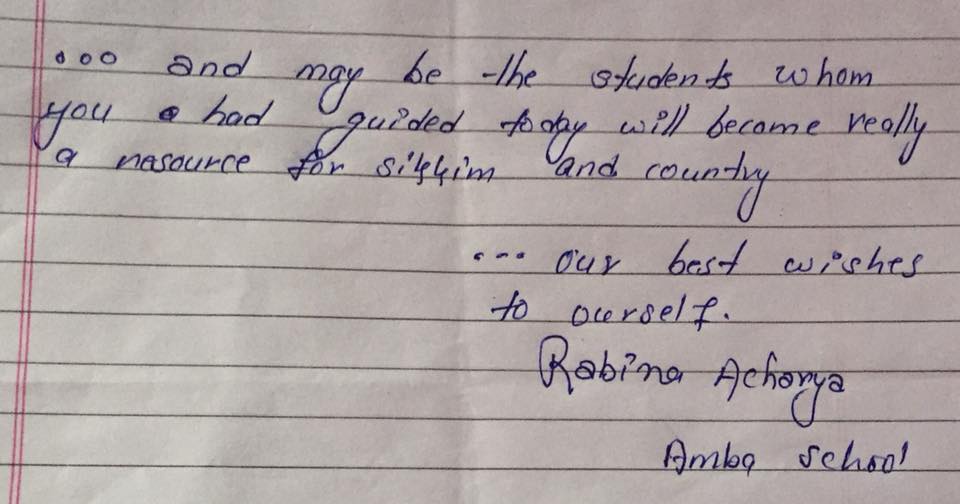 ... and may be the students whom
you had guided today will become really
a resource for sikkim and country
... our best wishes
to ourself.
Rabina Acharya
Amba school